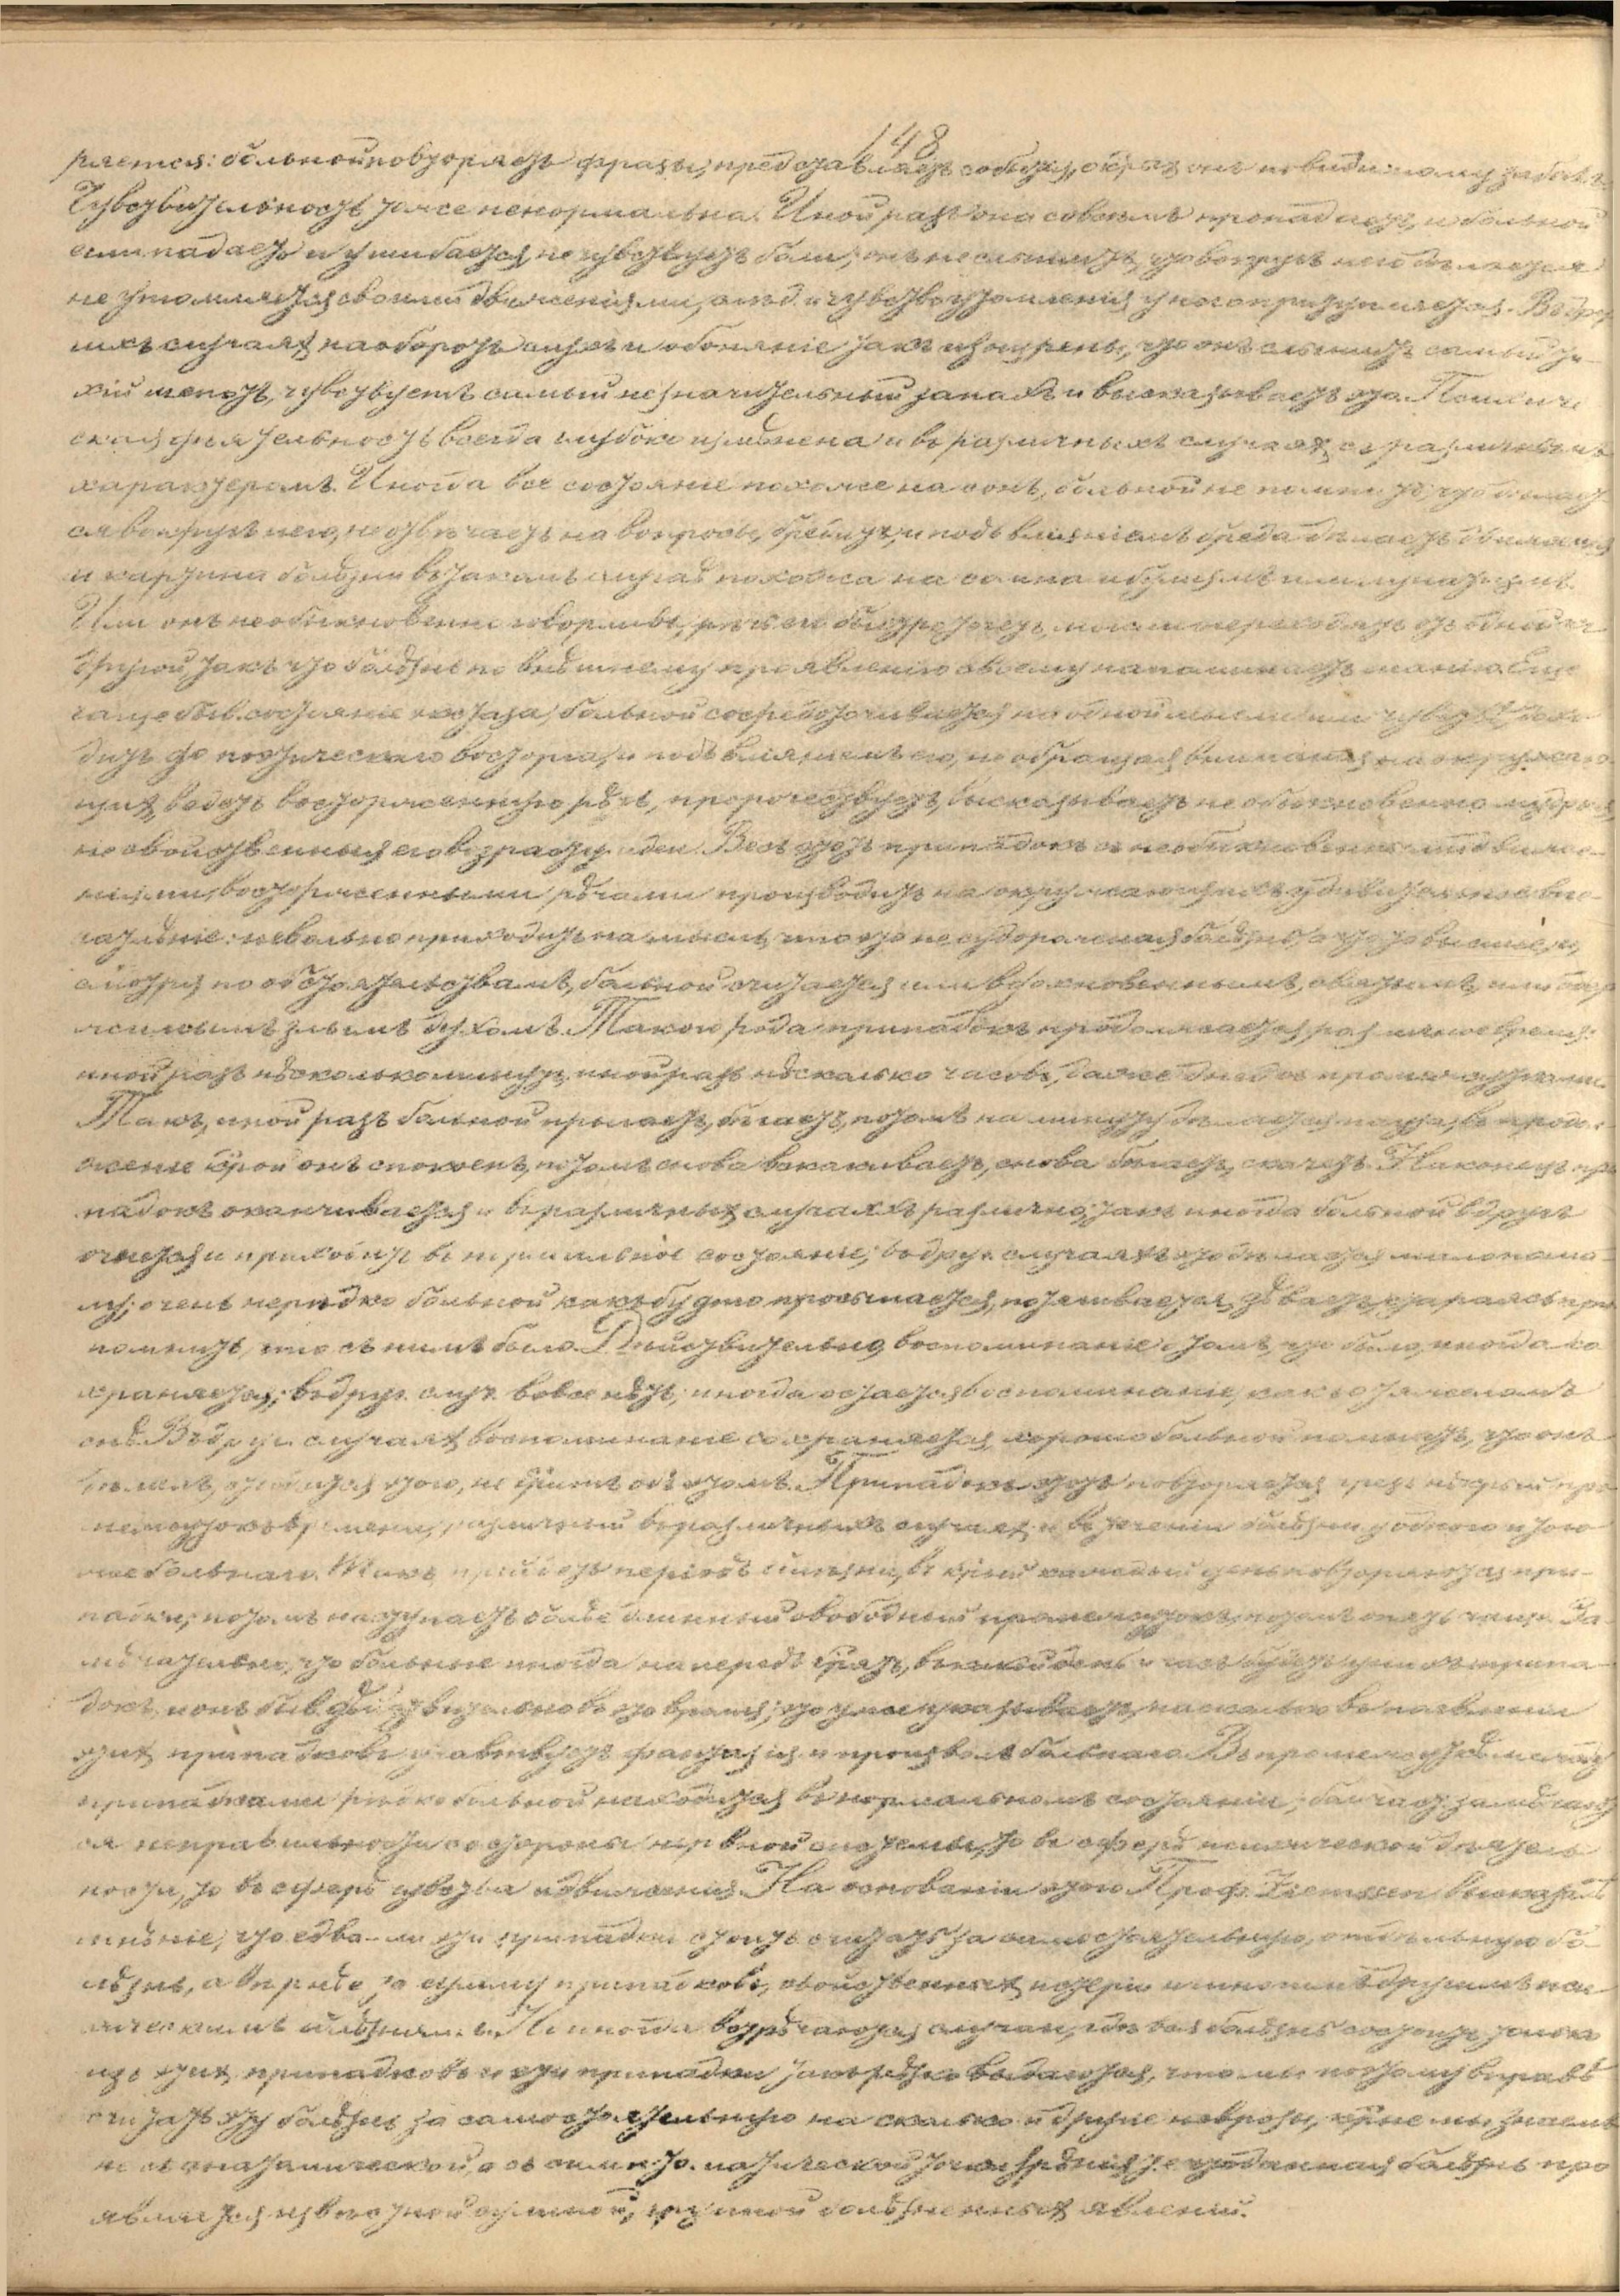 148
ряется: больной повторяетъ фразы, представляетъ событія, о котор. онъ повидимому забылъ.
Чувствительность тоже ненормальна. Иной разъ она совсѣмъ пропадаетъ, и больной
если падаетъ и ушибается, не чувствуетъ боли; онъ не слышитъ, что вокругъ него дѣлается
не утомляется своими движеніями, слѣд. и чувство утомленія у него притупляется. Въ друг
ихъ случаяхъ наоборотъ слухъ и обоняніе такъ изощрены, что онъ слышитъ самый ти-
хій шепотъ, чувствуетъ самый незначительный запахъ и высказываетъ это. Психиче
ская дѣятельность всегда глубоко измѣнена и въ различныхъ случаяхъ съ различнымъ
характеромъ. Иногда все состояніе похоже на сонъ, больной не помнитъ, что дѣлает
ся вокругъ него, не отвѣчаетъ на вопросы, бредитъ, и подъ вліяніемъ бреда дѣлаетъ движенія
и картина болѣзни въ такомъ случаѣ похожа на сомнамбулизмъ или лунатизмъ.
Или онъ необыкновенно говорливъ, рѣчь его быстро течетъ, мысли переходятъ отъ одной къ
другой такъ что болѣзнь по внѣшнему проявленію своему напоминаетъ манію. Еще
чаще быв. состояніе экстаза, больной сосредоточивается на одной мысли или чувствѣ, дохо
дитъ до поэтическаго восторга, и подъ вліяніемъ его, не обращая вниманія на окружаю
щихъ, ведетъ восторженную рѣчь, пророчествуетъ, высказываетъ необыкновенно мудрыя,
не свойственныя его возрасту идеи. Весь этотъ припадокъ съ необыкновенными движе-
ніями, восторженными рѣчами производитъ на окружающихъ удивительное впе-
чатлѣніе: невольно приходитъ на мысль, что это не судорожная болѣзнь, а что то высшее, и,
смотря по обстоятельствамъ, больной считается или вдохновеннымъ, святымъ, или одер
жимымъ злымъ духомъ. Такого рода припадокъ продолжается различное время:
иной разъ нѣсколько минутъ, иной разъ нѣсколько часовъ, даже дней съ промежутками.
Такъ, иной разъ больной прыгаетъ, бѣгаетъ, потомъ на минуту дѣлается пауза, въ продол
женіе котрой онъ спокоенъ, потомъ снова вскакиваетъ, снова бѣгаетъ, скачетъ. Наконецъ при
падокъ оканчивается и въ различныхъ случаяхъ различно, такъ иногда больной вдругъ
очнется и приходитъ въ нормальное состояніе; въ друг. случаяхъ это дѣлается мало по ма-
лу; очень нерѣдко больной какъ будто просыпается, потягивается, зѣваетъ, стараясь при
помнить, что съ нимъ было. Дѣйствительно, воспоминаніе о томъ, что было, иногда со
храняется; въ друг. случ. вовсе нѣтъ; иногда остается воспоминаніе, какъ о тяжеломъ
снѣ. Въ друг. случаяхъ воспоминаніе сохраняется, хорошо больной помнитъ, что онъ
дѣлалъ, стыдится этого, не говоритъ объ этомъ. Припадокъ этотъ повторяется чрезъ нѣкотрый про
межутокъ времени, различный въ различныхъ случаяхъ и въ теченіи болѣзни у одного и того
же больнаго. Такъ, пройдетъ періодъ болѣзни, въ котрый каждый день повторяются при-
падки, потомъ наступаетъ болѣе длинный свободный промежутокъ, потомъ опять чаще. За-
мѣчательно, что больные иногда напередъ говорятъ, въ какой день и часъ будетъ у нихъ припа-
докъ, и онъ быв. дѣйствительно въ это время; это уже указываетъ, насколько въ появленіи
этихъ припадковъ участвуетъ фантазія и произволъ больнаго. Въ промежуткѣ между
припадками рѣдко больной находится въ нормальномъ состояніи; большею ч. замѣчают
ся неправильности со стороны нервной системы, то въ сферѣ психической дѣятель
ности, то въ сферѣ чувства и движенія. На основаніи этого Проф. Ziemssen высказалъ
мнѣніе, что едва-ли эти припадки стоитъ считать за самостоятельную, отдѣльную бо-
лѣзнь, а вѣрнѣе за сумму припадковъ, свойственныхъ истеріи и многимъ другимъ пси
хическимъ болѣзнямъ. Но иногда встрѣчаются случаи, гдѣ вся болѣзнь состоитъ только
изъ этихъ припадковъ и эти припадки такъ рѣзко выдаются, что мы поэтому вправѣ
считать эту болѣзнь за самостоятельную на сколько и другіе неврозы, котрые мы знаемъ
не съ анатомической, а съ симптоматической точки зрѣнія, т.е. что данная болѣзнь про
является извѣстной суммой, группой болѣзненныхъ явленій.